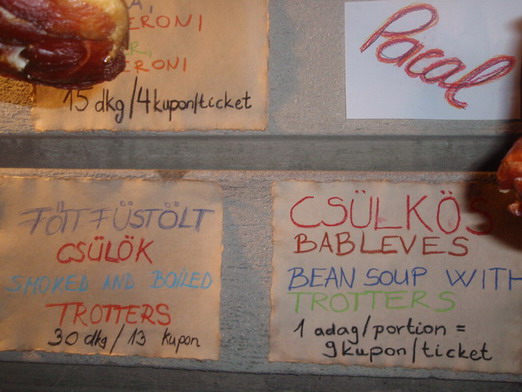 ERONI
ERONI
15 dkg/4kupon/ticket
Pacal
FŐTT FÜSTÖLT
CSÜLÖK
SMOKED AND BOILED
TROTTERS
30 dkg/13 kupon
CSÜLKÖS
BABLEVES
BEAN SOUP WITH
TROTTERS
1 adag/portion =
9kupon/ticket